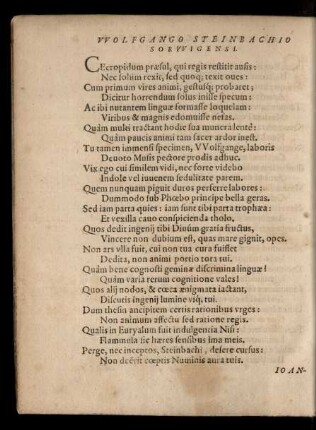 VVOLFGANGO STEINBACHIO
SOBVVIGENSI.
CEcropidum præsul, qui regis restitit ausis:
Nec solum rexit, sed quoq; texit oues:
Cum primum vires animi, gestusq; probaret;
Dicitur horrendum solus inisse specum:
Ac ibi nutantem linguæ formasse loquelam:
Viribus & magnis edomuisse nefas.
Quàm multi tractant hodie sua munera lentè:
Quàm paucis animi tam sacer ardor inest.
Tu tamen immensi specimen, VVolfgange, laboris
Deuoto Musis pectore prodis adhuc.
Vix ego cui similem vidi, nec forte videbo
Indole vel iuuenem sedulitate parem.
Quem nunquam piguit duros perferre labores:
Dummodo sub Phœbo principe bella geras.
Sed iam parta quies: iam sunt tibi parta trophæa:
Et vexilla cano conspicienda tholo,
Quos dedit ingenij tibi Diuûm gratia fructus,
Vincere non dubium est, quas mare gignit, opes.
Non ars vlla fuit, cui non tua cura fuisset
Dedita, non animi portio tota tui.
Quàm bene cognosti geminæ discrimina linguæ!
Quàm varia rerum cognitione vales!
Quos alij nodos, & cœca ænigmata iactant,
Discutis ingenij lumine visq. tui.
Dum thesin ancipitem certis rationibus vrges:
Non animum affectu sed ratione regis.
Qualis in Euryalum fuit indulgentia Nisi:
Flammula sic hæres sensibus ima meis.
Perge, nec inceptos, Steinbachi, desere cursus:
Non deerit cœptis Numinis aura tuis.
IOAN-